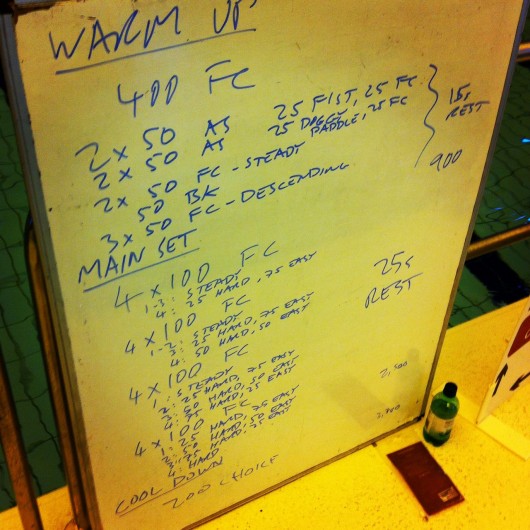 WARM UP
400 FC
2 x 50 AS 25 FIST, 25 FC
2 x 50 AS 25 DOGGY PADDLE, 25 FC
2 x 50 FC - STEADY
50 BK
3 x 50 FC - DESCENDING
15s REST
900
MAIN SET
4 x 100 FC
1-3: STEADY
4: 25 HARD, 75 EASY
4 x 100 FC
1-2: STEADY
3: 25 HARD, 75 EASY
4: 50 HARD, 50 EASY
4 x 100 FC
1: STEADY
2: 25 HARD, 75 EASY
3: 50 HARD, 50 EASY
4: 75 HARD, 25 EASY
4 x 100 FC
1: 25 HARD, 75 EASY
2: 50 HARD, 50 EASY
3: 75 HARD, 25 EASY
4: HARD
25s
REST
2,500
COOL DOWN
200 CHOICE
2,700